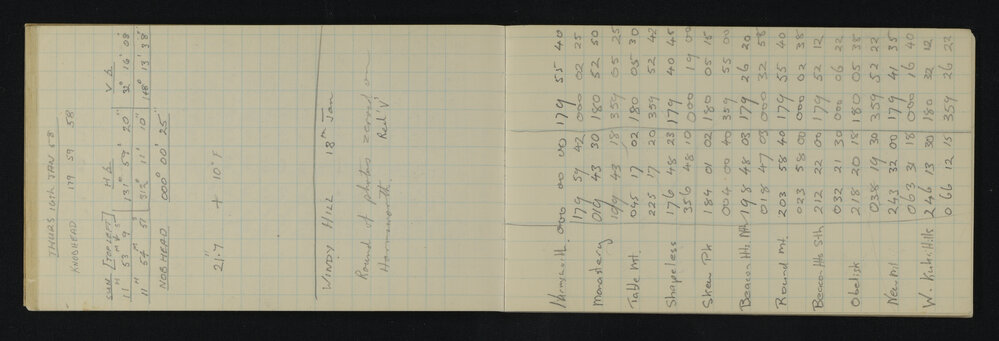 THURS 16th JAN 58
KNOBHEAD 179 59 58
SUN [TOP LEFT] H ∆ V ∆
H M S
11 53 9 131° 59' 20" 32° 16' 08"
H M S
11 54 51 312° 11' 10" 148° 13' 38"
NOB HEAD 000° 00' 25"
21.7" + 10°F
WINDY HILL 18th Jan
Round of photos zeroed on
Harmsworth. Roll 'V'
000 00 00 179 55 40
179 59 42 000 02 25
Monastery 019 43 30 180 52 50
199 43 18 359 05 25
Table Mt. 045 17 02 180 05 30
225 17 20 359 52 42
Shapeless 176 48 23 179 40 45
356 48 10 000 19 00
Skew Pk 184 01 02 180 05 15
004 00 40 359 55 00
Beacon Hts Nth 198 48 03 179 26 20
018 47 03 000 32 58
Round Mt. 203 58 40 179 55 40
023 58 00 000 02 38
Beacon Hts Sth 212 22 00 179 52 12
032 21 30 000 06 22
Obelisk 218 20 18 180 05 38
038 19 30 359 52 22
New Mt 243 32 00 179 41 35
063 31 18 000 16 40
W. 246 13 30 180 32 12
066 12 15 359 26 22